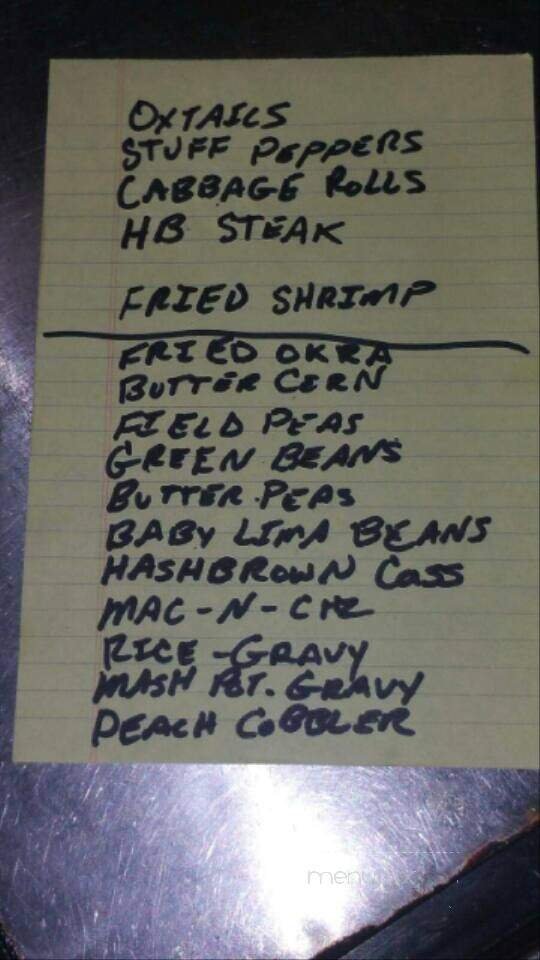 OXTAILS
STUFF PEPPERS
CABBAGE ROLLS
HB STEAK
FRIED SHRIMP
FRIED OKRA
BUTTER CORN
FIELD PEAS
GREEN BEANS
BUTTER PEAS
BABY LIMA BEANS
HASHBROWN CASS
MAC-N-CHZ
RICE-GRAVY
MASH POT. GRAVY
PEACH COBBLER